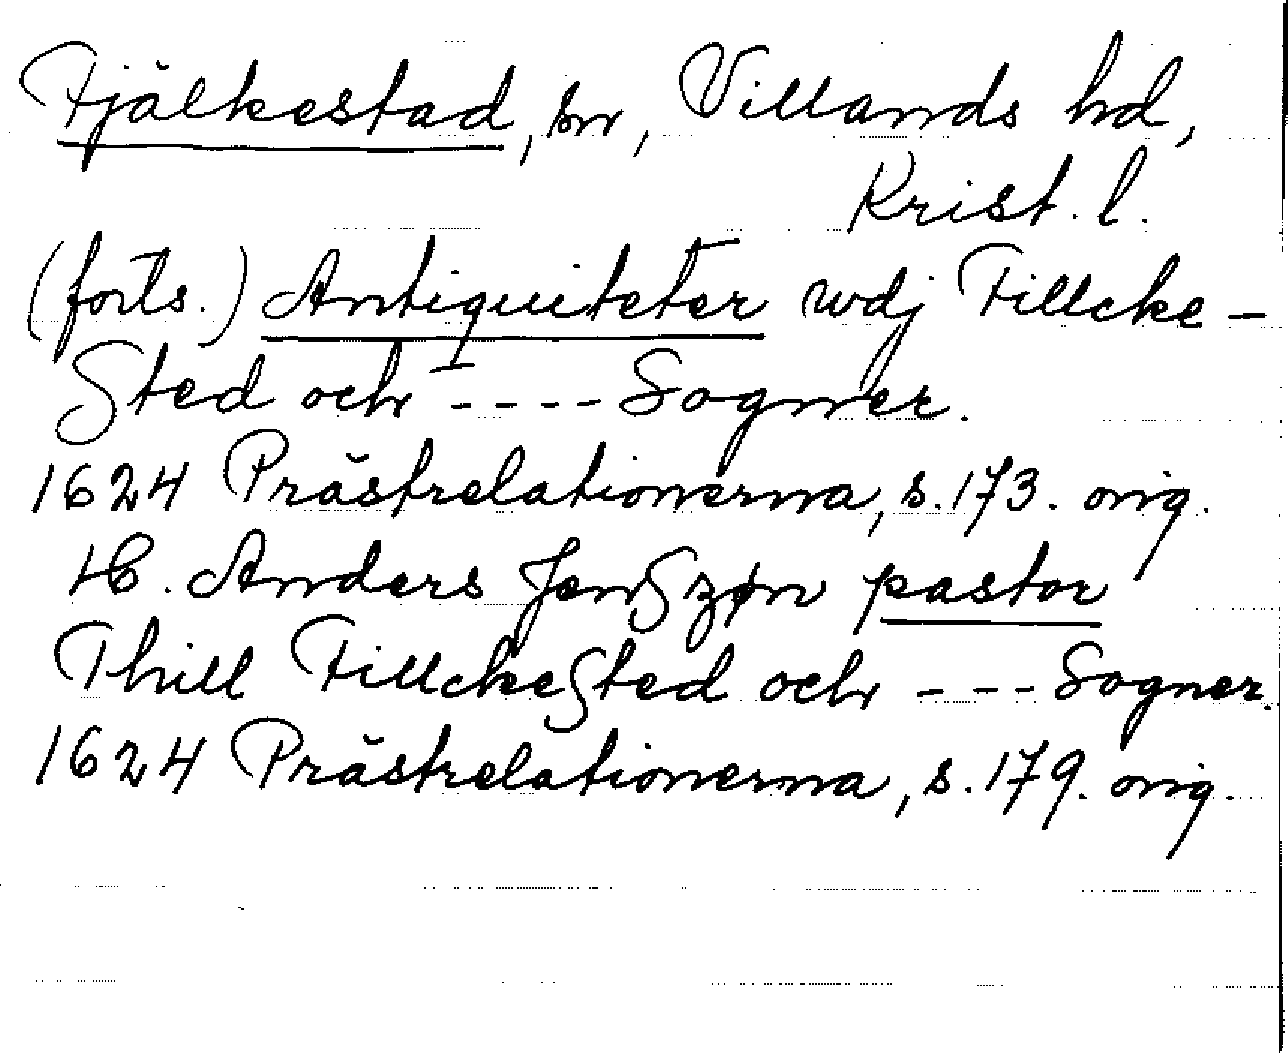 Fjälkestad, sn, Villands hd,
Krist. l.
(forts.) Antiquiteter wdj Fillcke-
Sted och ---- Sogner.
1624 Prästrelationerna, s. 173. orig.
H. Anders JenSzøn pastor
Thill FillckeSted och --- Sogner.
1624 Prästrelationerna, s. 179. orig.